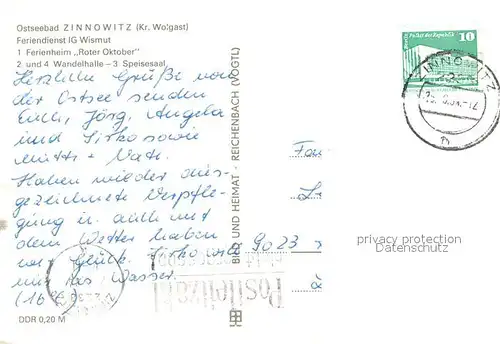 Ostseebad ZINNOWITZ (Kr. Wolgast)
Feriendienst IG Wismut
1 Ferienheim „Roter Oktober"
2 und 4 Wandelhalle – 3 Speisesaal
Herzliche Grüße von
der Ostsee senden
Euch, Jörg, Angela
und Sirko sowie
Mutti + Vati.
Haben wieder aus-
gezeichnete Verpfle-
gung u. auch mit
dem Wetter haben
wir Glück. Sirko
ins Wasser.
DDR 0,20 M
BILD UND HEIMAT · REICHENBACH (VOGTL)
Palast der Republik
10
ZINNOWITZ
Fam
9023
Postleitzahl
privacy protection
Datenschutz